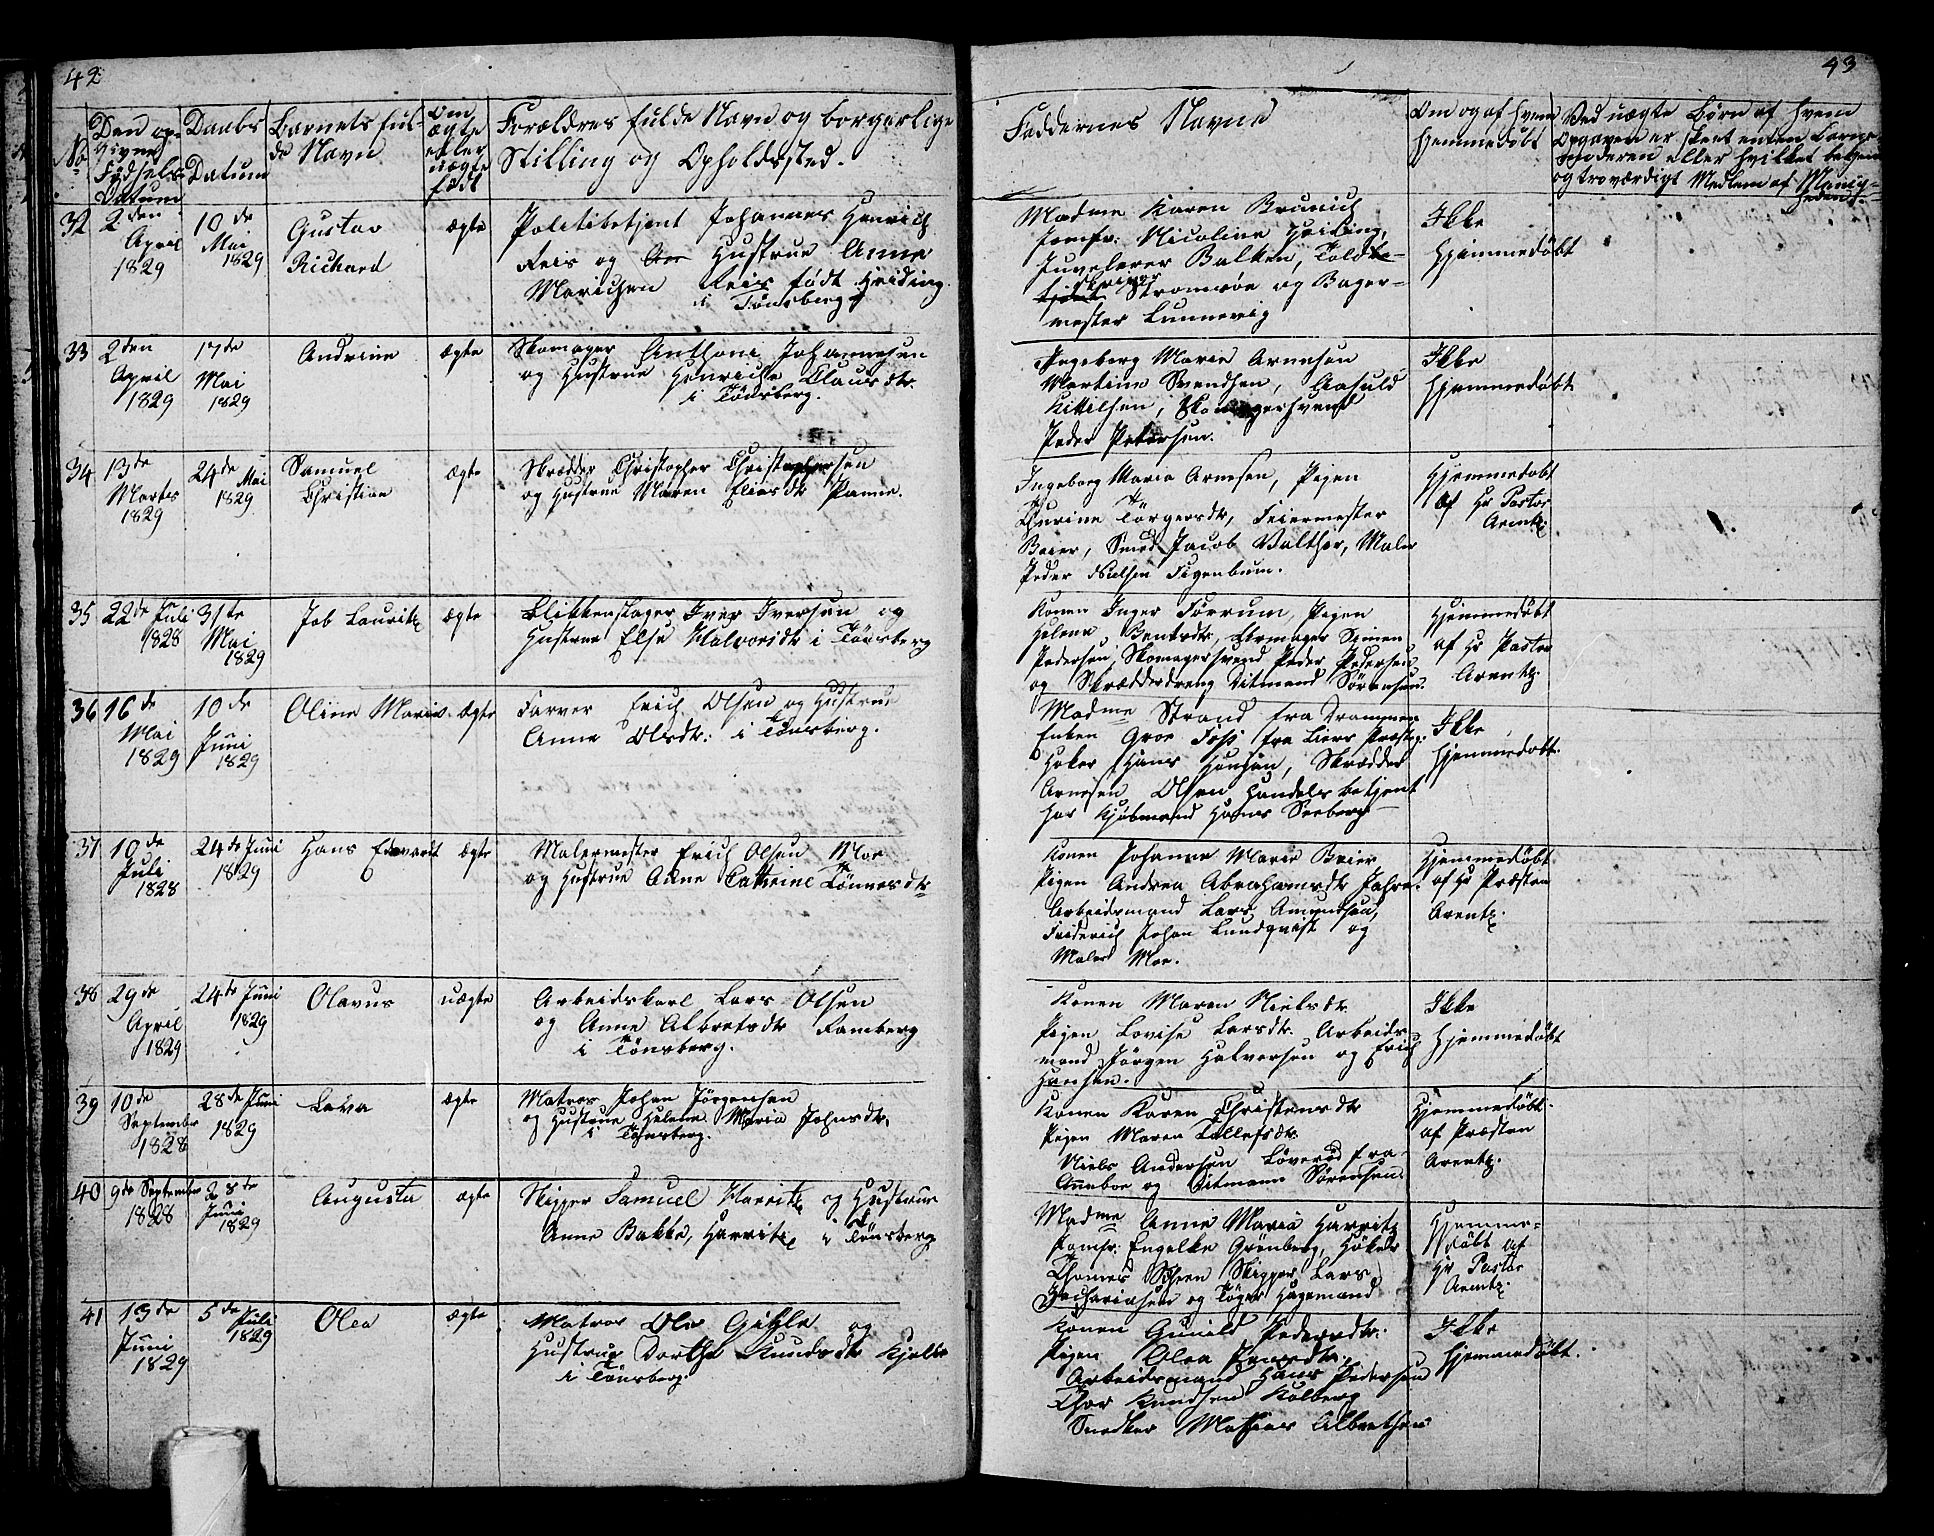 42
No
Den op-
givne
Fødsels
Datum
Daabs
Datum
Barnets ful-
de Navn
Om
ægte
eller
uægte
født
Forældres fulde Navn og borgerlige
Stilling og Opholdssted.
32
2den
April
1829
10de
Mai
1829
Gustav
Richard
ægte
Politibetjent Johannes Henrich
Reis og Hustrue Anne
Marichen Reis født Heiding
i Tönsberg
33
2den
April
1829
17de
Mai
1829
Andrine
ægte
Skomager Anthoni Johannesen
og Hustrue Henriche Clausdtr
i Tönsberg.
34
13de
Marts
1829
24de Mai
1829
Samuel
Christian
ægte
Skrædder Christopher Christophersen
og Hustrue Maren Eliasdtr Panne.
35
22de Juli
1828
31te
Mai
1829
Job Lauritz
ægte
Blikkenslager Iver Iversen og
Hustrue Else Halvorsdtr i Tönsberg
36
16de
Mai
1829
10de
Juni
1829
Oline Marie
ægte
Farver Erich Olsen og Hustrue
Anne Olsdtr: i Tönsberg.
37
10de
Juli
1828
24de Juni
1829
Hans Edevardt
ægte
Malermester Erich Olsen Moe
og Hustrue Anne Cathrine Tönnesdtr
38
29de
April
1829
24de Juni
1829
Olavus
uægte
Arbeidskarl Lars Olsen
og Anne Albretsdtr Ramberg
i Tönsberg.
39
10de
September
1828
28de Juni
1829
Lava
ægte
Matros Johan Jörgensen
og Hustrue Helene Maria Johnsdtr.
i Tönsberg.
40
9de September
1828
28de
Juni
1829
Augusta
ægte
Skipper Samuel Harritz og Hustrue
Anne Bakke, Harritz i Tönsberg
41
13de
Juni
1829
5de Juli
1829
Olea
ægte
Matros Ole Gihle og
Hustrue Dorthe Knudsdtr Kjelle
i Tönsberg.
43
Faddernes Navne
Om og af hvem
hjemmedöbt
Ved uægte Börn af hvem
Opgaven er skeet enten Barne-
moderen eller hvilket bekjen
og troværdigt Medlem af Menig-
heden.
Madme Karen Brunich
Jomfr: Nicoline Heiding,
Juvelerer Balken, Told-
skriver Stromsöe og Bager-
mester Lunnevig
Ikke
hjemmedöbt
Ingeborg Marie Arnesen
Martine Svendsen, Aasuld
Kittilsen, Skomagersvend
Peder Petersen.
Ikke
hjemmedöbt
Ingeborg Maria Arnesen, Pigen
Thurine Törgersdtr, Feiermester
Beier, Smed Jacob Valther, Maler
Peder Nielsen Figenbum.
Hjemmedöbt
af Hr Pastor
Arentz.
Konen Inger Förrum, Pigen
Helene Bentsdtr, Uhrmager Simen
Pedersen, Skomagersvend Peder Pedersen
og Skrædderdreng Ditmand Sörensen.
Hjemmedöbt
af Hr Pastor
Arentz.
Madme Strand fra Drammen
Enken Groe Foss fra Liers Præsteg:
Höker Hans Hansen, Skrædder
Arnesen Olsen Handelsbetjent
hos Kjöbmand Hans Seeberg
Ikke
hjemmedöbt.
Konen Johanne Marie Beier
Pigen Andrea Abrahamsdtr Jahre.
Arbeidsmand Lars Amundsen,
Friderich Johan Lundqvist og
Maler Moe.
Hjemmedöbt
af Hr Præsten
Arentz.
Konen Maren Nielsdtr
Pigen Lovise Larsdtr. Arbeids-
mand Jörgen Halversen og Erich
Hansen.
Ikke
hjemmedöbt
Konen Karen Christensdtr
Pigen Maren Tollefsdtr.
Niels Andersen Löveröd fra
Anneboe og Ditmann Sörensen.
Hjemmedöbt
af Præsten
Arentz.
Madme Anne Maria Harritz
Jomfr: Engelke Grönberg, Höker
Thomes Scheen Skipper Lars
Zachariasen og Töger Hagemand
Hjemme-
döbt af
Hr Pastor
Arentz.
Konen Gunild Pedersdtr.
Pigen Olea Jensdtr.
Arbeidsmand Hans Pedersen
Thor Knudsen Kolberg
Snedker Mathias Albretsen
Ikke
hjemmedöbt.